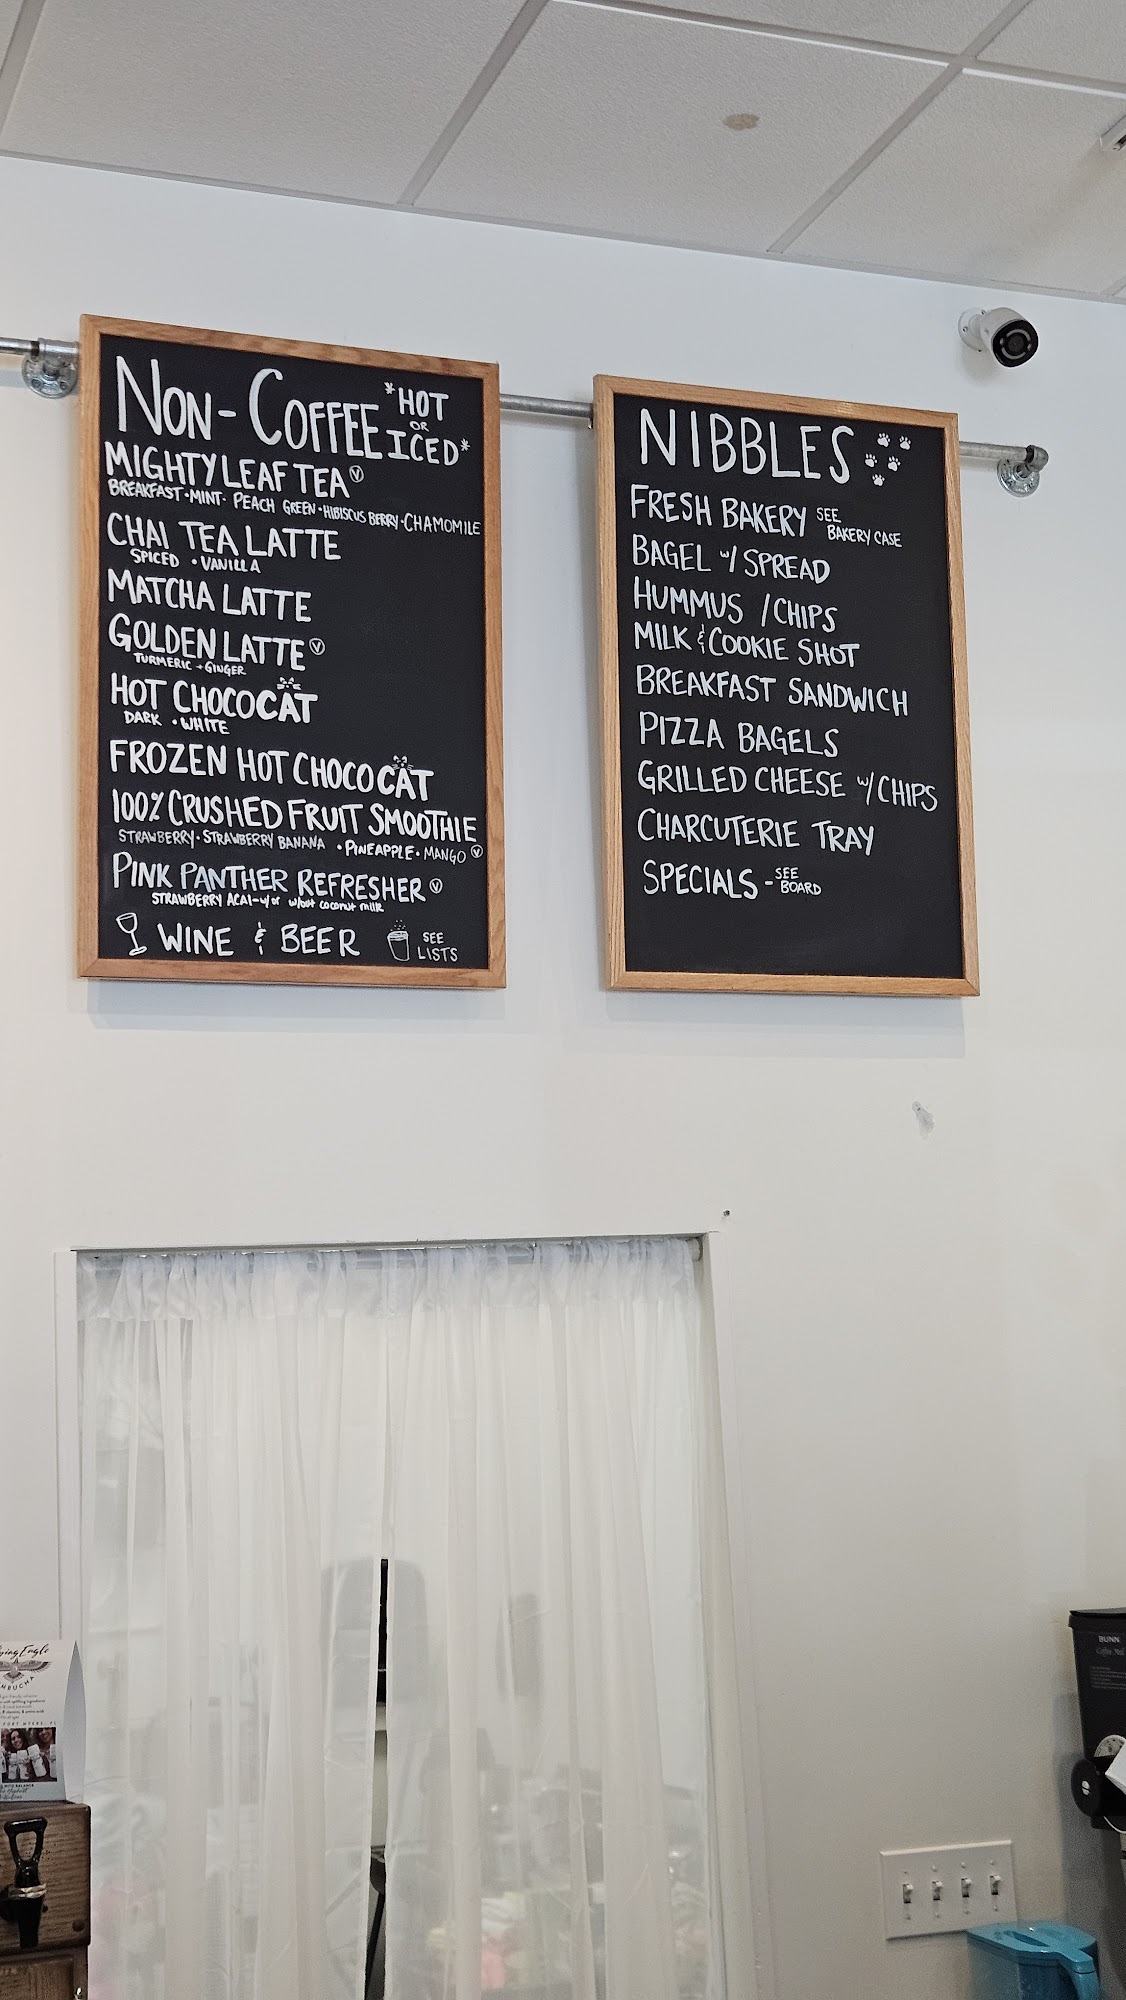 NON-COFFEE *HOT OR ICED*
MIGHTY LEAF TEA Ⓥ
BREAKFAST · MINT · PEACH GREEN · HIBISCUS BERRY · CHAMOMILE
CHAI TEA LATTE
SPICED · VANILLA
MATCHA LATTE
GOLDEN LATTE Ⓥ
TURMERIC + GINGER
HOT CHOCOCAT
DARK · WHITE
FROZEN HOT CHOCOCAT
100% CRUSHED FRUIT SMOOTHIE
STRAWBERRY · STRAWBERRY BANANA · PINEAPPLE · MANGO Ⓥ
PINK PANTHER REFRESHER Ⓥ
STRAWBERRY ACAI - w/ or w/out coconut milk
WINE & BEER SEE LISTS
NIBBLES
FRESH BAKERY SEE BAKERY CASE
BAGEL w/ SPREAD
HUMMUS / CHIPS
MILK & COOKIE SHOT
BREAKFAST SANDWICH
PIZZA BAGELS
GRILLED CHEESE w/ CHIPS
CHARCUTERIE TRAY
SPECIALS - SEE BOARD
BUNN